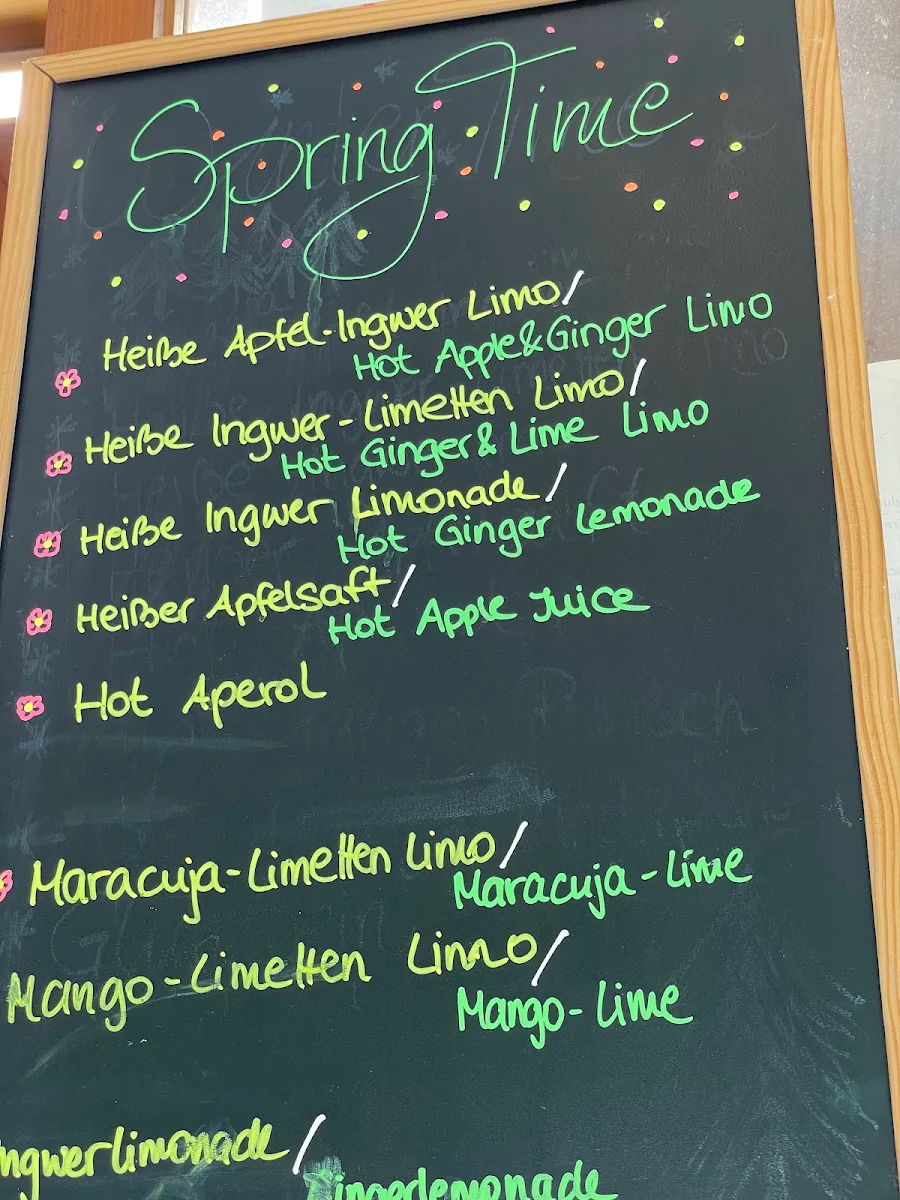 Spring Time
Heiße Apfel-Ingwer Limo/
Hot Apple&Ginger Limo
Heiße Ingwer-Limetten Limo/
Hot Ginger& Lime Limo
Heiße Ingwer Limonade/
Hot Ginger Lemonade
Heißer Apfelsaft/
Hot Apple Juice
Hot Aperol
Maracuja-Limetten Limo/
Maracuja-Lime
Mango-Limetten Limo/
Mango-Lime
ngwerlimonade/
ingerlemonade